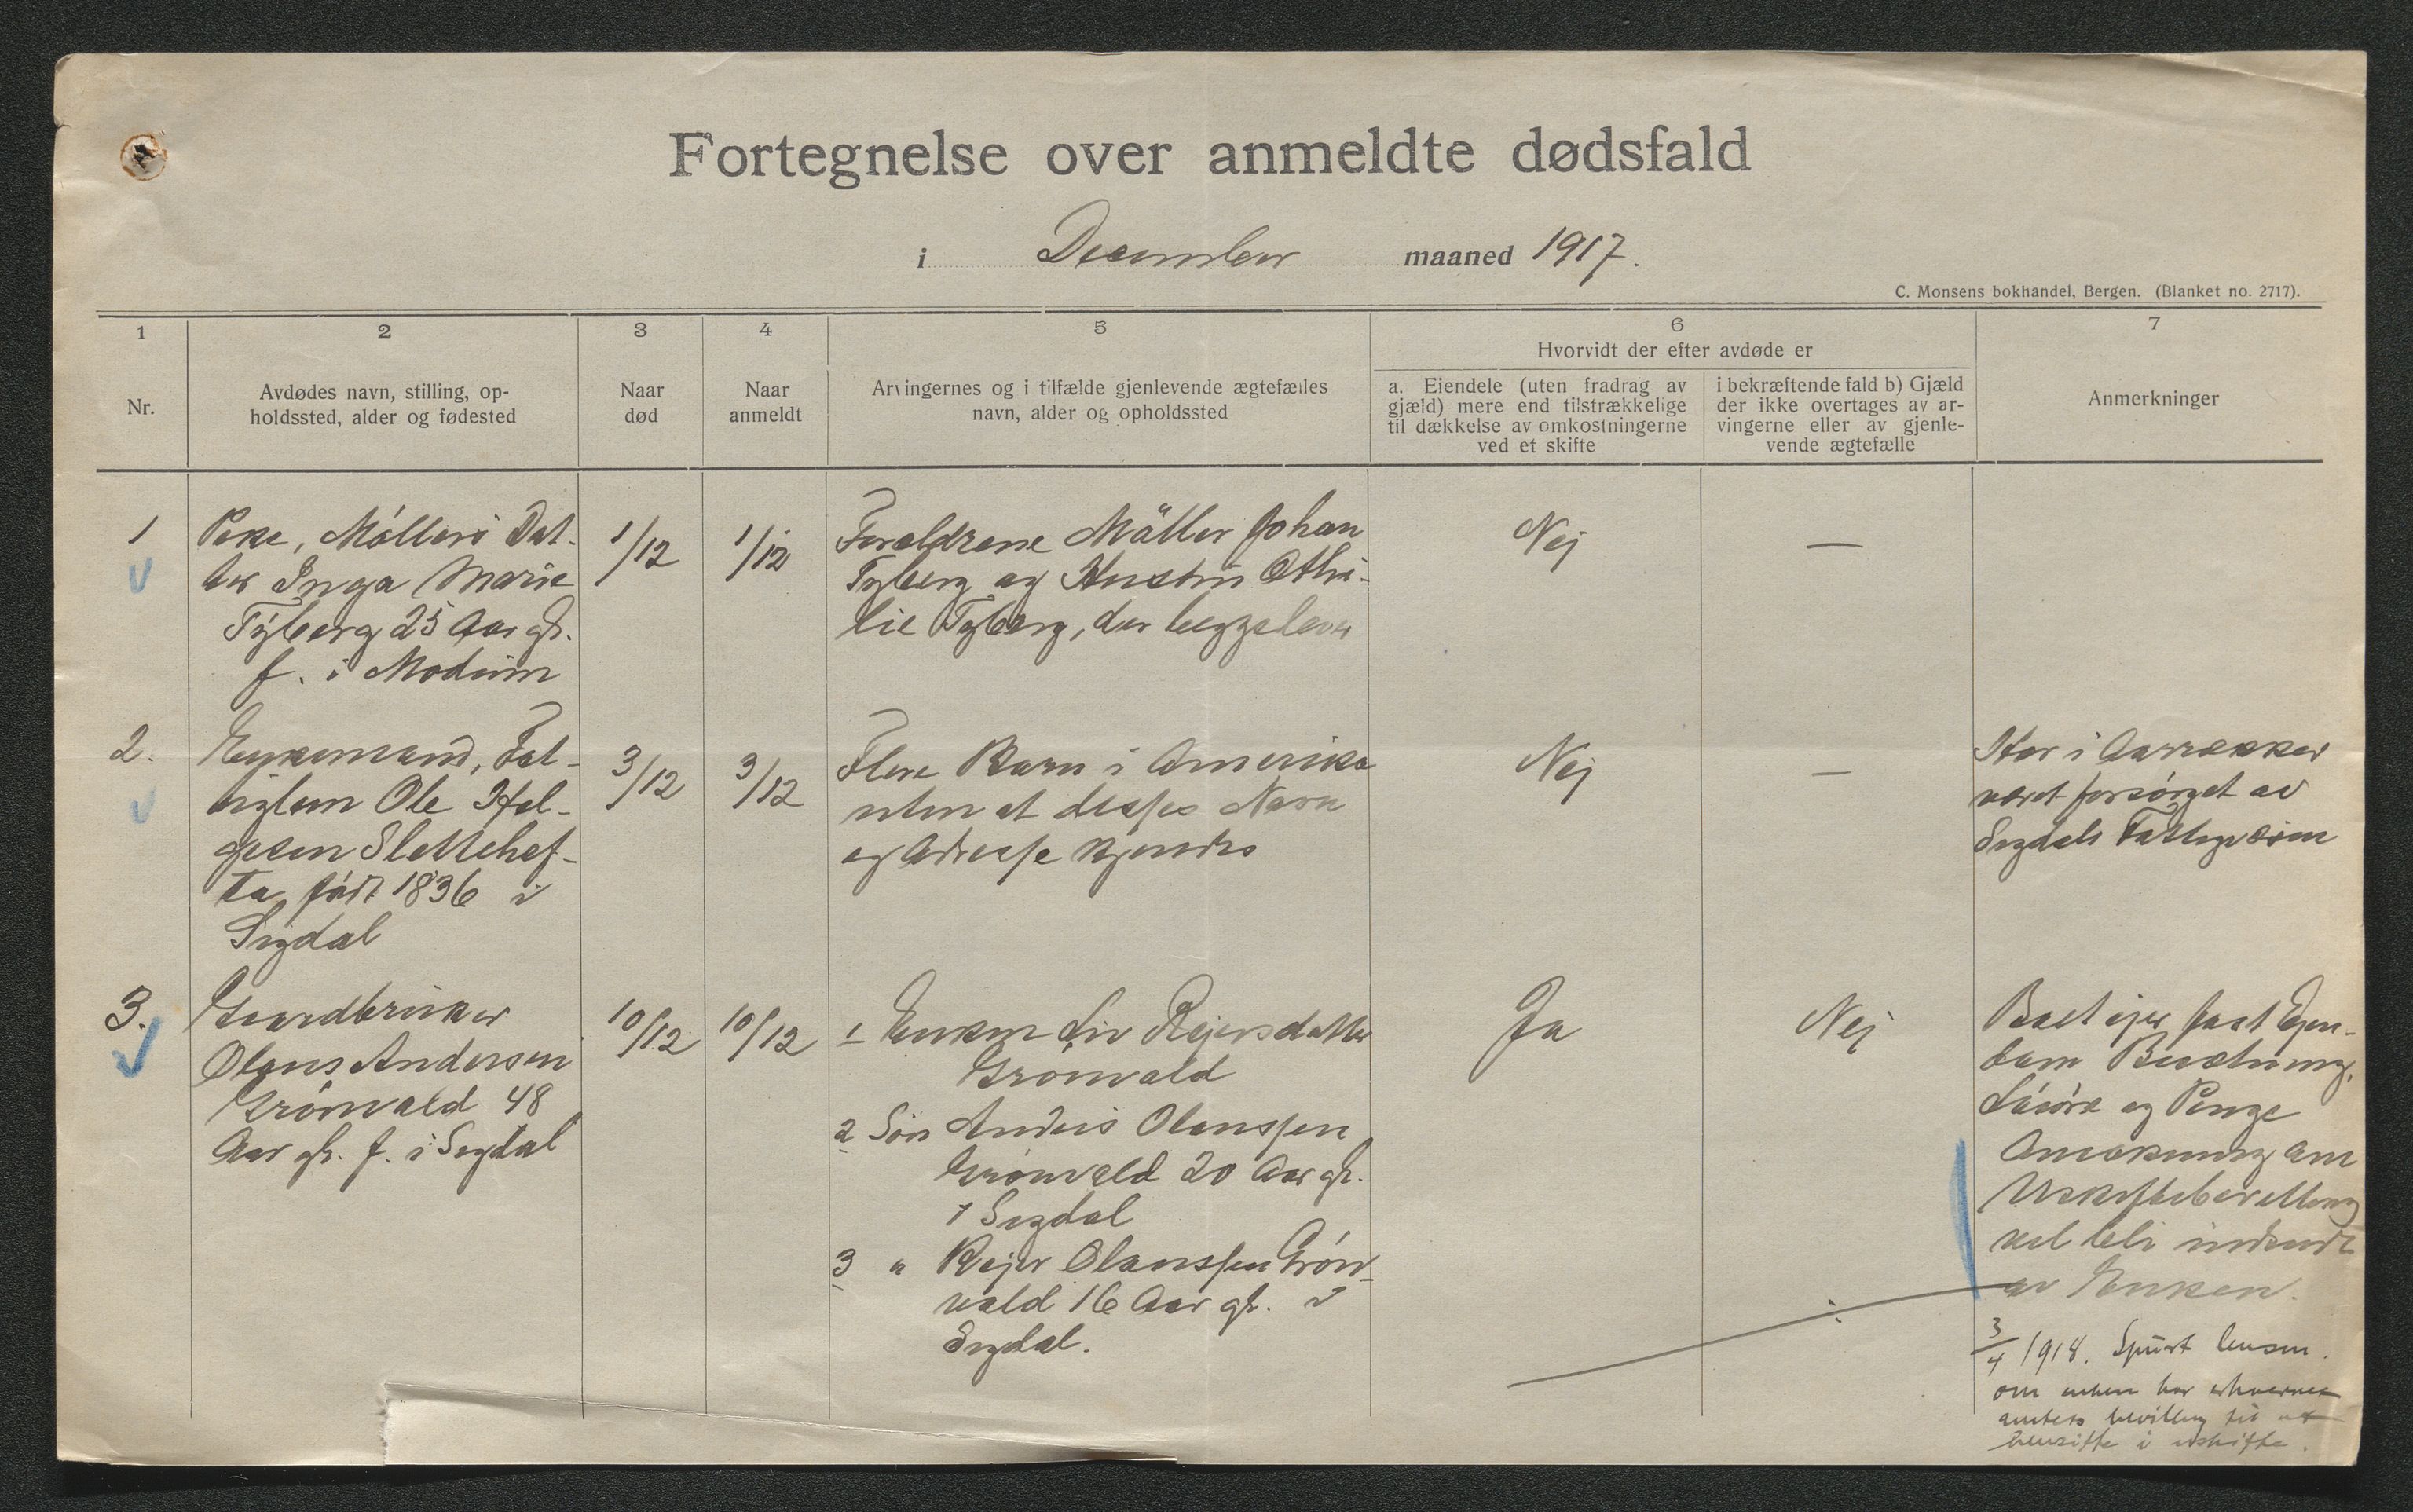 Fortegnelse over anmeldte dødsfald
i December maaned 1917.
C. Monsens bokhandel, Bergen. (Blanket no. 2717).
1
2
3
4
5
6
7
Nr.
Avdødes navn, stilling, op-
holdssted, alder og fødested
Naar
død
Naar
anmeldt
Arvingernes og i tilfælde gjenlevende ægtefælles
navn, alder og opholdssted
Hvorvidt der efter avdøde er
a. Eiendele (uten fradrag av
gjæld) mere end tilstrækkelige
til dækkelse av omkostningerne
ved et skifte
i bekræftende fald b) Gjæld
der ikke overtages av ar-
vingerne eller av gjenle-
vende ægtefælle
Anmerkninger
1
Pike, Møllers Dat-
ter Inga Marie
Tyberg 25 Aar gl.
f. i Modum
1/12
1/12
Forældrene Møller Johan
Tyberg og Hustru Othi-
lie Tyberg, der begge lever
Nej
—
2.
Enkemand, Fat-
niglem Ole Hel-
gesen Slettehef-
ta født 1836 i
Sigdal
3/12
3/12
Flere Barn i Amerika
uten at disses Navn
og Adresse kjendes
Nej
—
Har i Aarrækker
været forsørget av
Sigdals Fattigvæsen
3.
Gaardbruker
Olaus Andersen
Grønvald 48
Aar gl. f. i Sigdal
10/12
10/12
1 Enken Liv Reiersdatter
Grønvald
2 Søn Anders Olaussen
Grønvald 20 Aar gl.
i Sigdal
3 " Reier Olaussen Grøn-
vald 16 Aar gl. i
Sigdal.
Ja
Nej
Boet ejer fast Ejen-
dom Besætning,
Løsøre og Penge
Ansøkning om
Uskiftebevilling
vil bli indsendt
av Enken.
3/4 1918. Spurt lensm.
om enken har erhvervet
amtets bevilling til at
hensitte i uskifte.